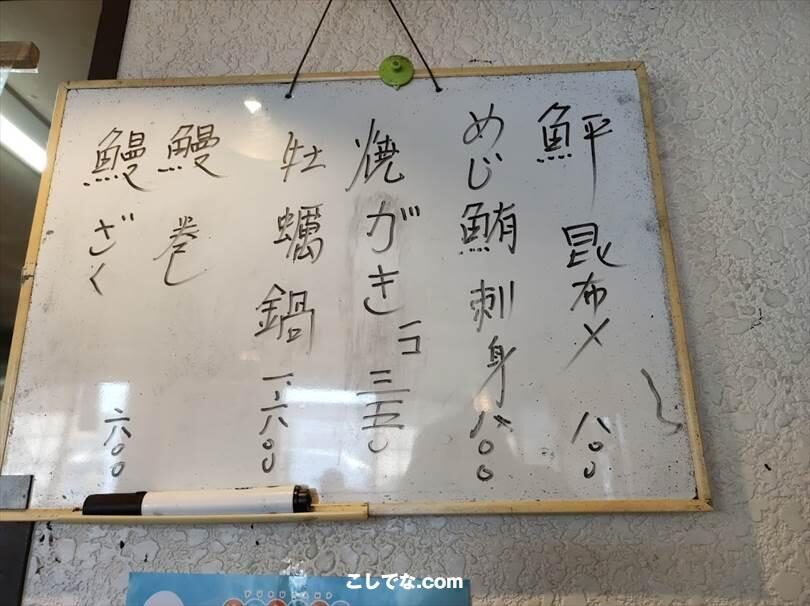 鮃昆布〆 八〇〇
めじ鮪刺身 八〇〇
焼がき 一コ 三五〇
牡蠣鍋 一、六〇〇
鰻巻
鰻ざく 六〇〇
こしでな.com